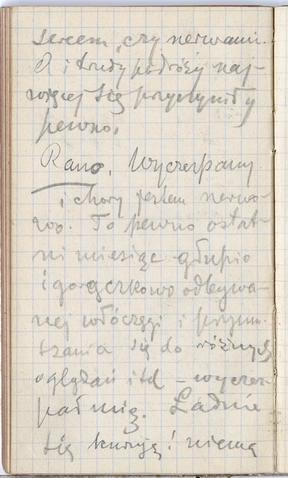 sercem, czy nerwami.
A i trudy podróży naj-
więcej się przyczyniły
pewno.
Rano. Wyczerpany
i chory jestem nerwo-
wo. To pewno ostat-
ni miesiąc głupio
i gorączkowo odbywa-
nej włóczęgi i przymu-
szania się do różnych
oglądań itd – wyczer-
pał mię. Ładnie
się kuruję! niema